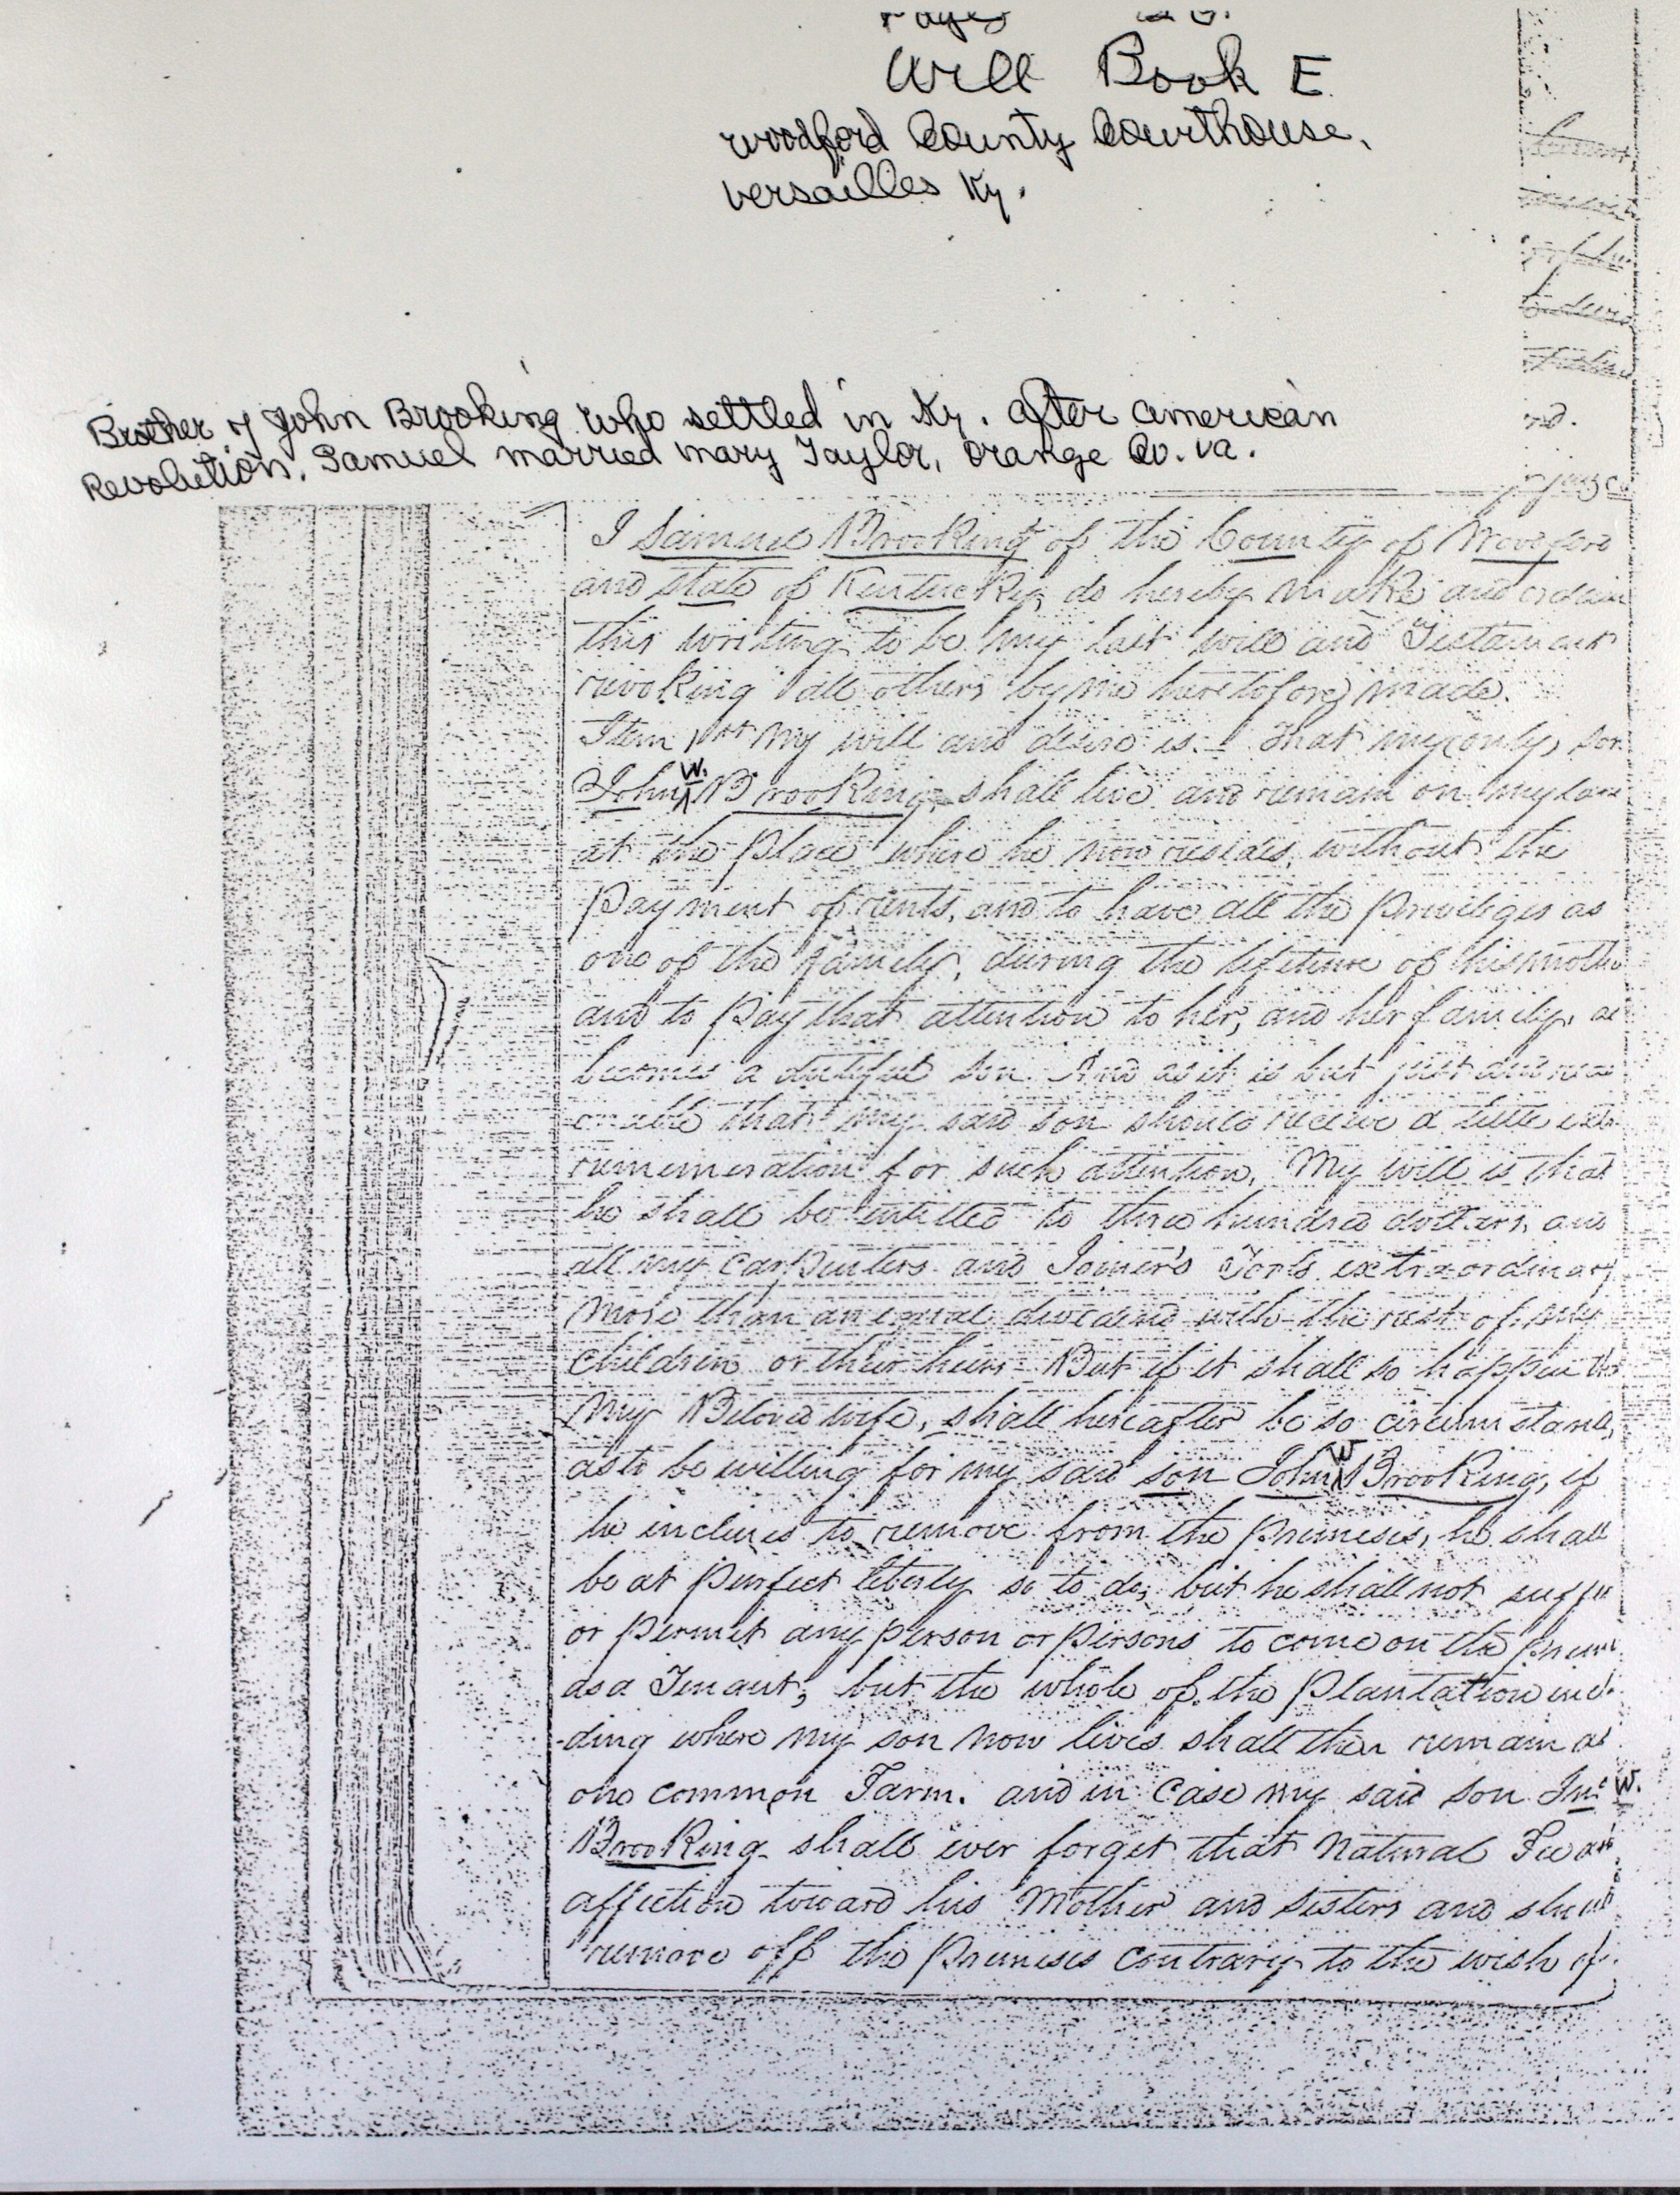 Pages
Will Book E
Woodford County Courthouse,
Versailles Ky.
Brother of John Brooking who settled in Ky. after American
Revolution. Samuel married Mary Taylor, Orange Co. Va.
I Samuel Brooking of the County of Woodford
and state of Kentucky, do hereby make and ordain
this writing to be my last will and Testament
revoking all others by me heretofore made.
Item 1st My will and desire is:- That my only son
John W. Brooking shall live and remain on my
at the place where he now resides, without the
payment of rents, and to have all the privileges as
one of the family, during the lifetime of his mother
and to pay that attention to her, and her family, as
becomes a dutiful son. And as it is but just and
that my said son should receive a little
remuneration for such attention, My will is that
he shall be intitled to three hundred dollars, and
all my carpenters and Joiner's Tools extraordinary
more than an equal dividend with the rest of my
children or their heirs - But if it shall so happen
My Beloved wife, shall hereafter be so
as to be willing for my said son John W Brooking, if
he inclines to remove from the premises, he shall
be at perfect liberty so to do; but he shall not suffer
or permit any person or persons to come on the
as a Tenant; but the whole of the plantation
-ding where my son now lives shall then remain as
one common Farm. and in case my said son Jno W.
Brooking shall ever forget that natural
affection toward his Mother and sisters and
remove off the premises contrary to the wish of